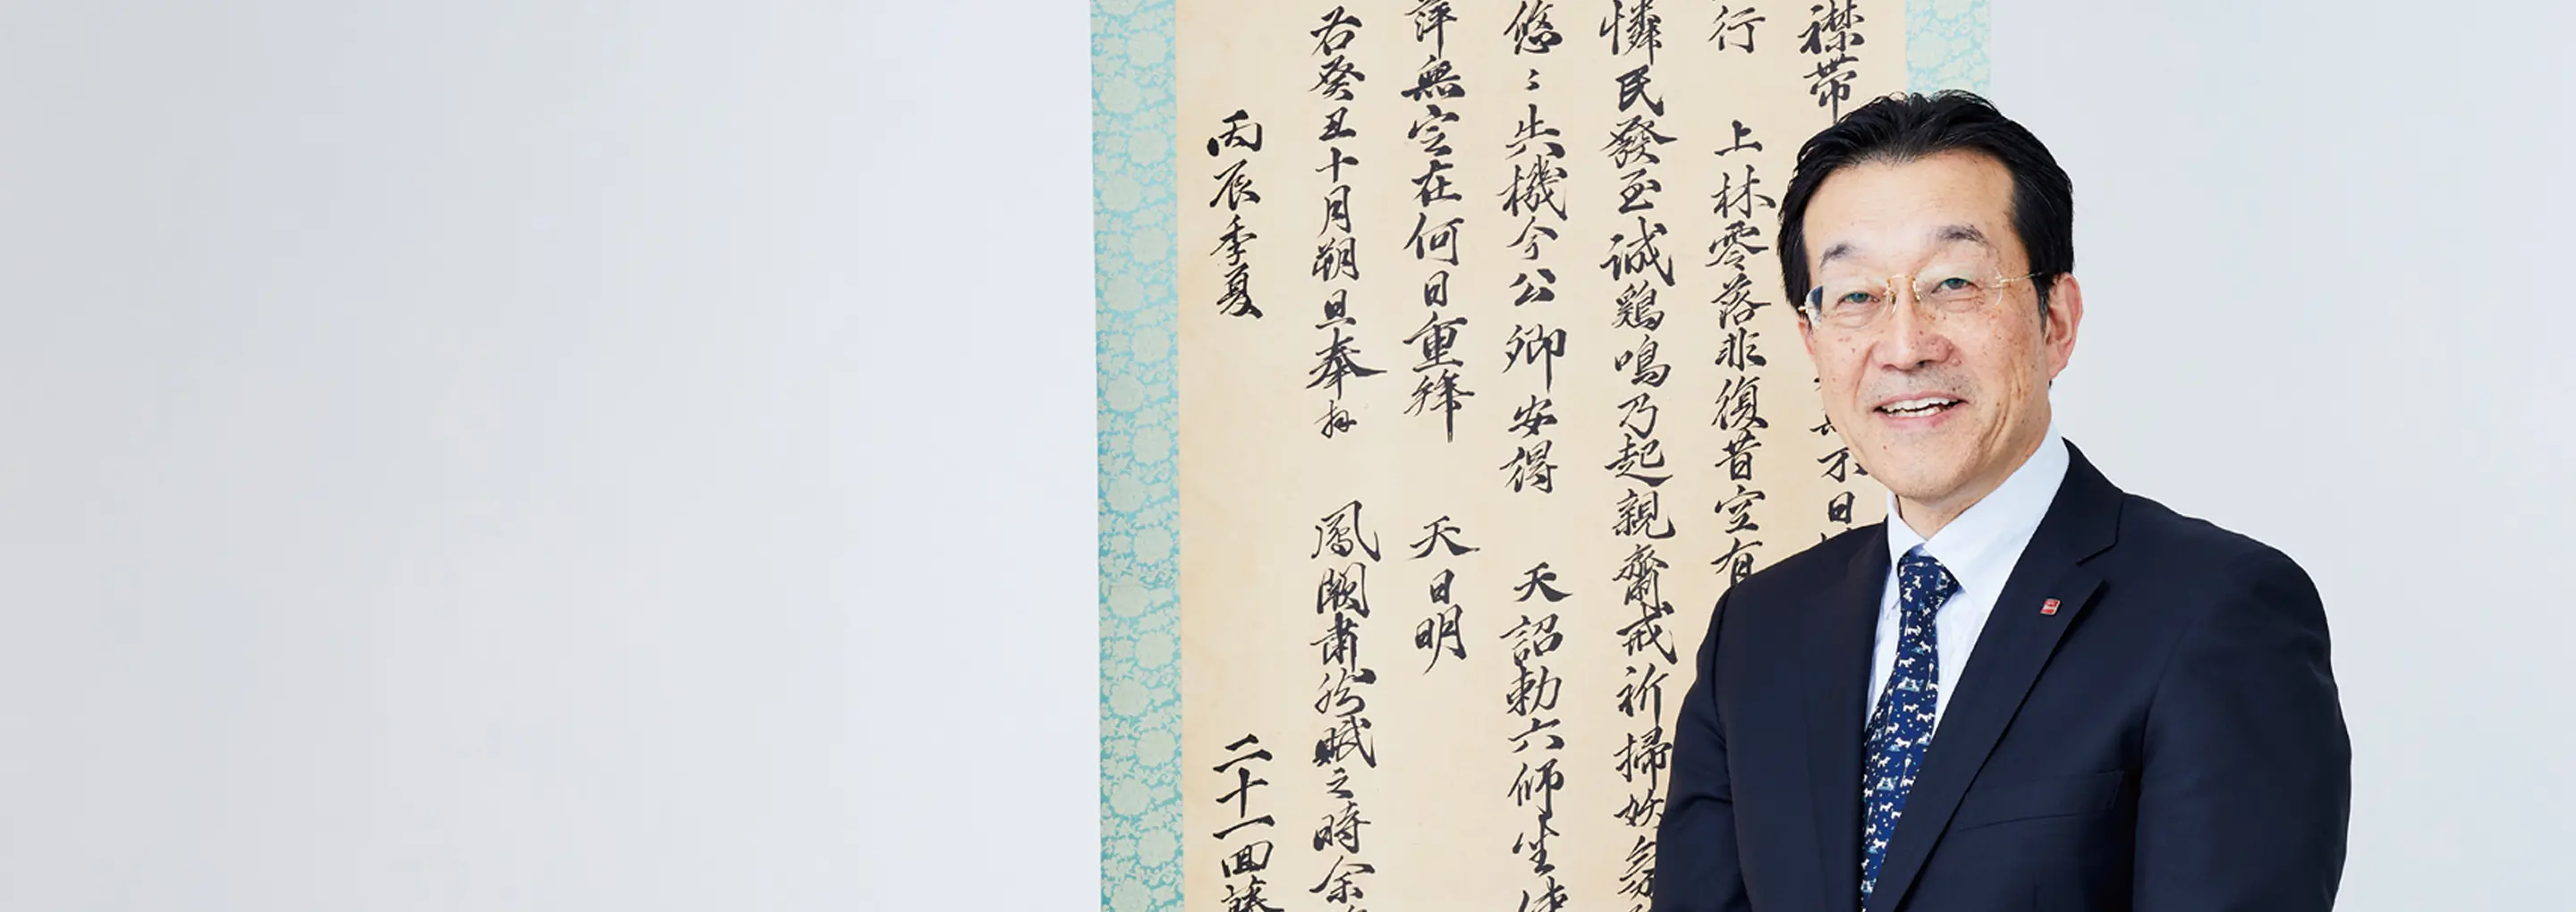 襟帶 不日
行 上林零落非復昔空有
憐民發至誠鷄鳴乃起親齋戒祈掃妖氛
悠〻失機今公卿安得 天詔勅六師坐使
萍無定在何日重拜 天日明
右癸丑十月朔旦奉拜 鳳闕肅然賦之時余
丙辰季夏 二十一回藤